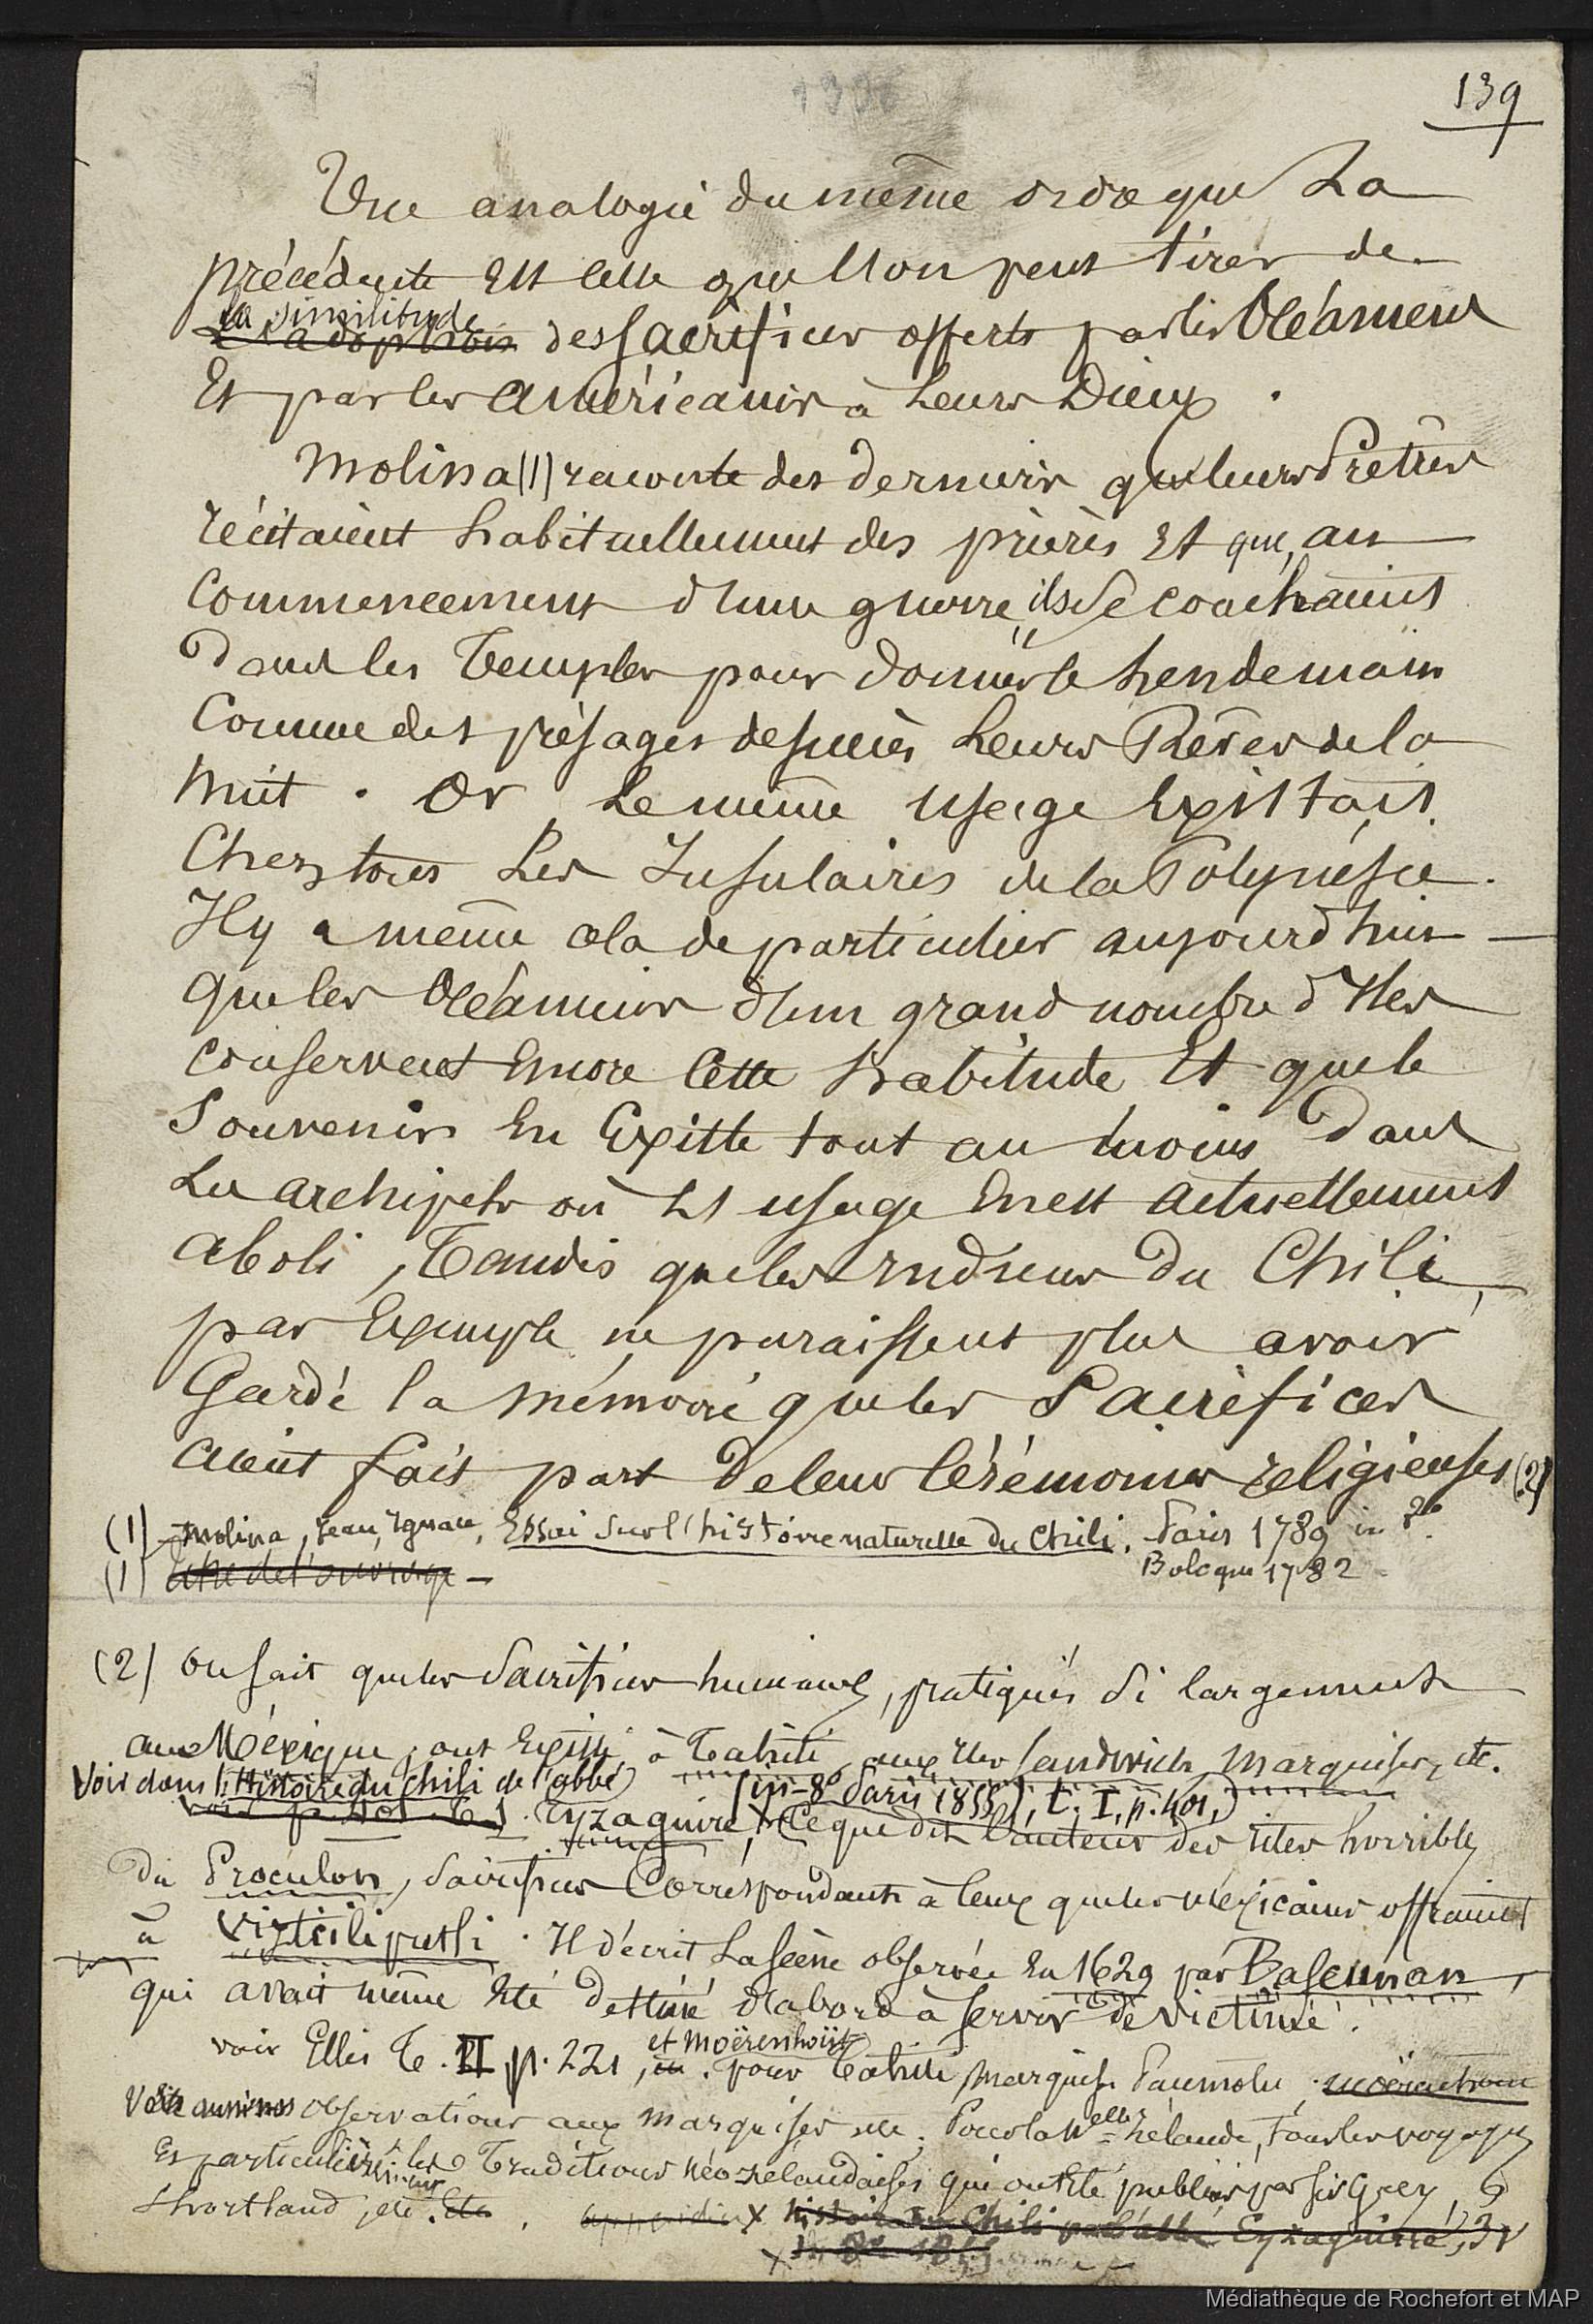 139
Une analogie du même ordre que la
précédente est celle que l'on peut tirer de
la similitude
des sacrifices offerts par les Océaniens
Et par les américains à leurs Dieux.
Molina (1) raconte des derniers que leurs Prêtres
récitaient habituellement des prières Et que, au
Commencement d'une guerre, ils se couchaient
Dans les Temples pour donner le lendemain
Comme des présages assurés leurs Rêves de la
nuit. Or le même usage Existait
Chez tous les Insulaires de la Polynésie.
Il y a même cela de particulier aujourd'hui
que les Océaniens d'un grand nombre d'Iles
conservent Encore Cette habitude Et que le
Souvenir En Existe tout au moins Dans
les archipels où l'usage En est actuellement
aboli, Tandis que les Indiens du Chili,
par Exemple ne paraissent plus avoir
Gardé la mémoire que les Sacrifices
aient fait part de leurs Cérémonies religieuses (2)
(1) Molina, Jean, Ignace, Essai sur l'histoire naturelle du Chili. Paris 1789 in 8°.
Bologne 1782
(1) titre de l'ouvrage
(2) On sait que les Sacrifices humains, pratiqués si largement
au Mexique, ont Existé à Tahiti, aux Iles Sandwich, Marquises, etc.
Voir dans l'Histoire du Chili de l'abbé (in-8° Paris 1855), t. I, p. 401,
voir p. 401 T. 1. Eyzaguirre, Ce que dit l'auteur des rites horribles
du Proculon, Sacrifices Correspondants à Ceux que les Mexicains offraient
à Viztcilipultsi. Il décrit la scène observée En 1629 par Bascunan,
qui avait même Eté Destiné d'abord à servir de Victime.
voir Ellis T. II p. 221, et Moërenhoüt pour Tahiti, Marquises, Paumotu,
Voir aussi nos observations aux Marquises etc. Nelle Zélande, tous les voyages
Et particulièrement les Traditions néo-zélandaises qui ont été publiées par Sir Grey,
Shortland, etc. Etc.
appendix x histoire du Chili par l'abbé Eyzaguirre, 3 v
x in 8° 1855
Médiathèque de Rochefort et MAP